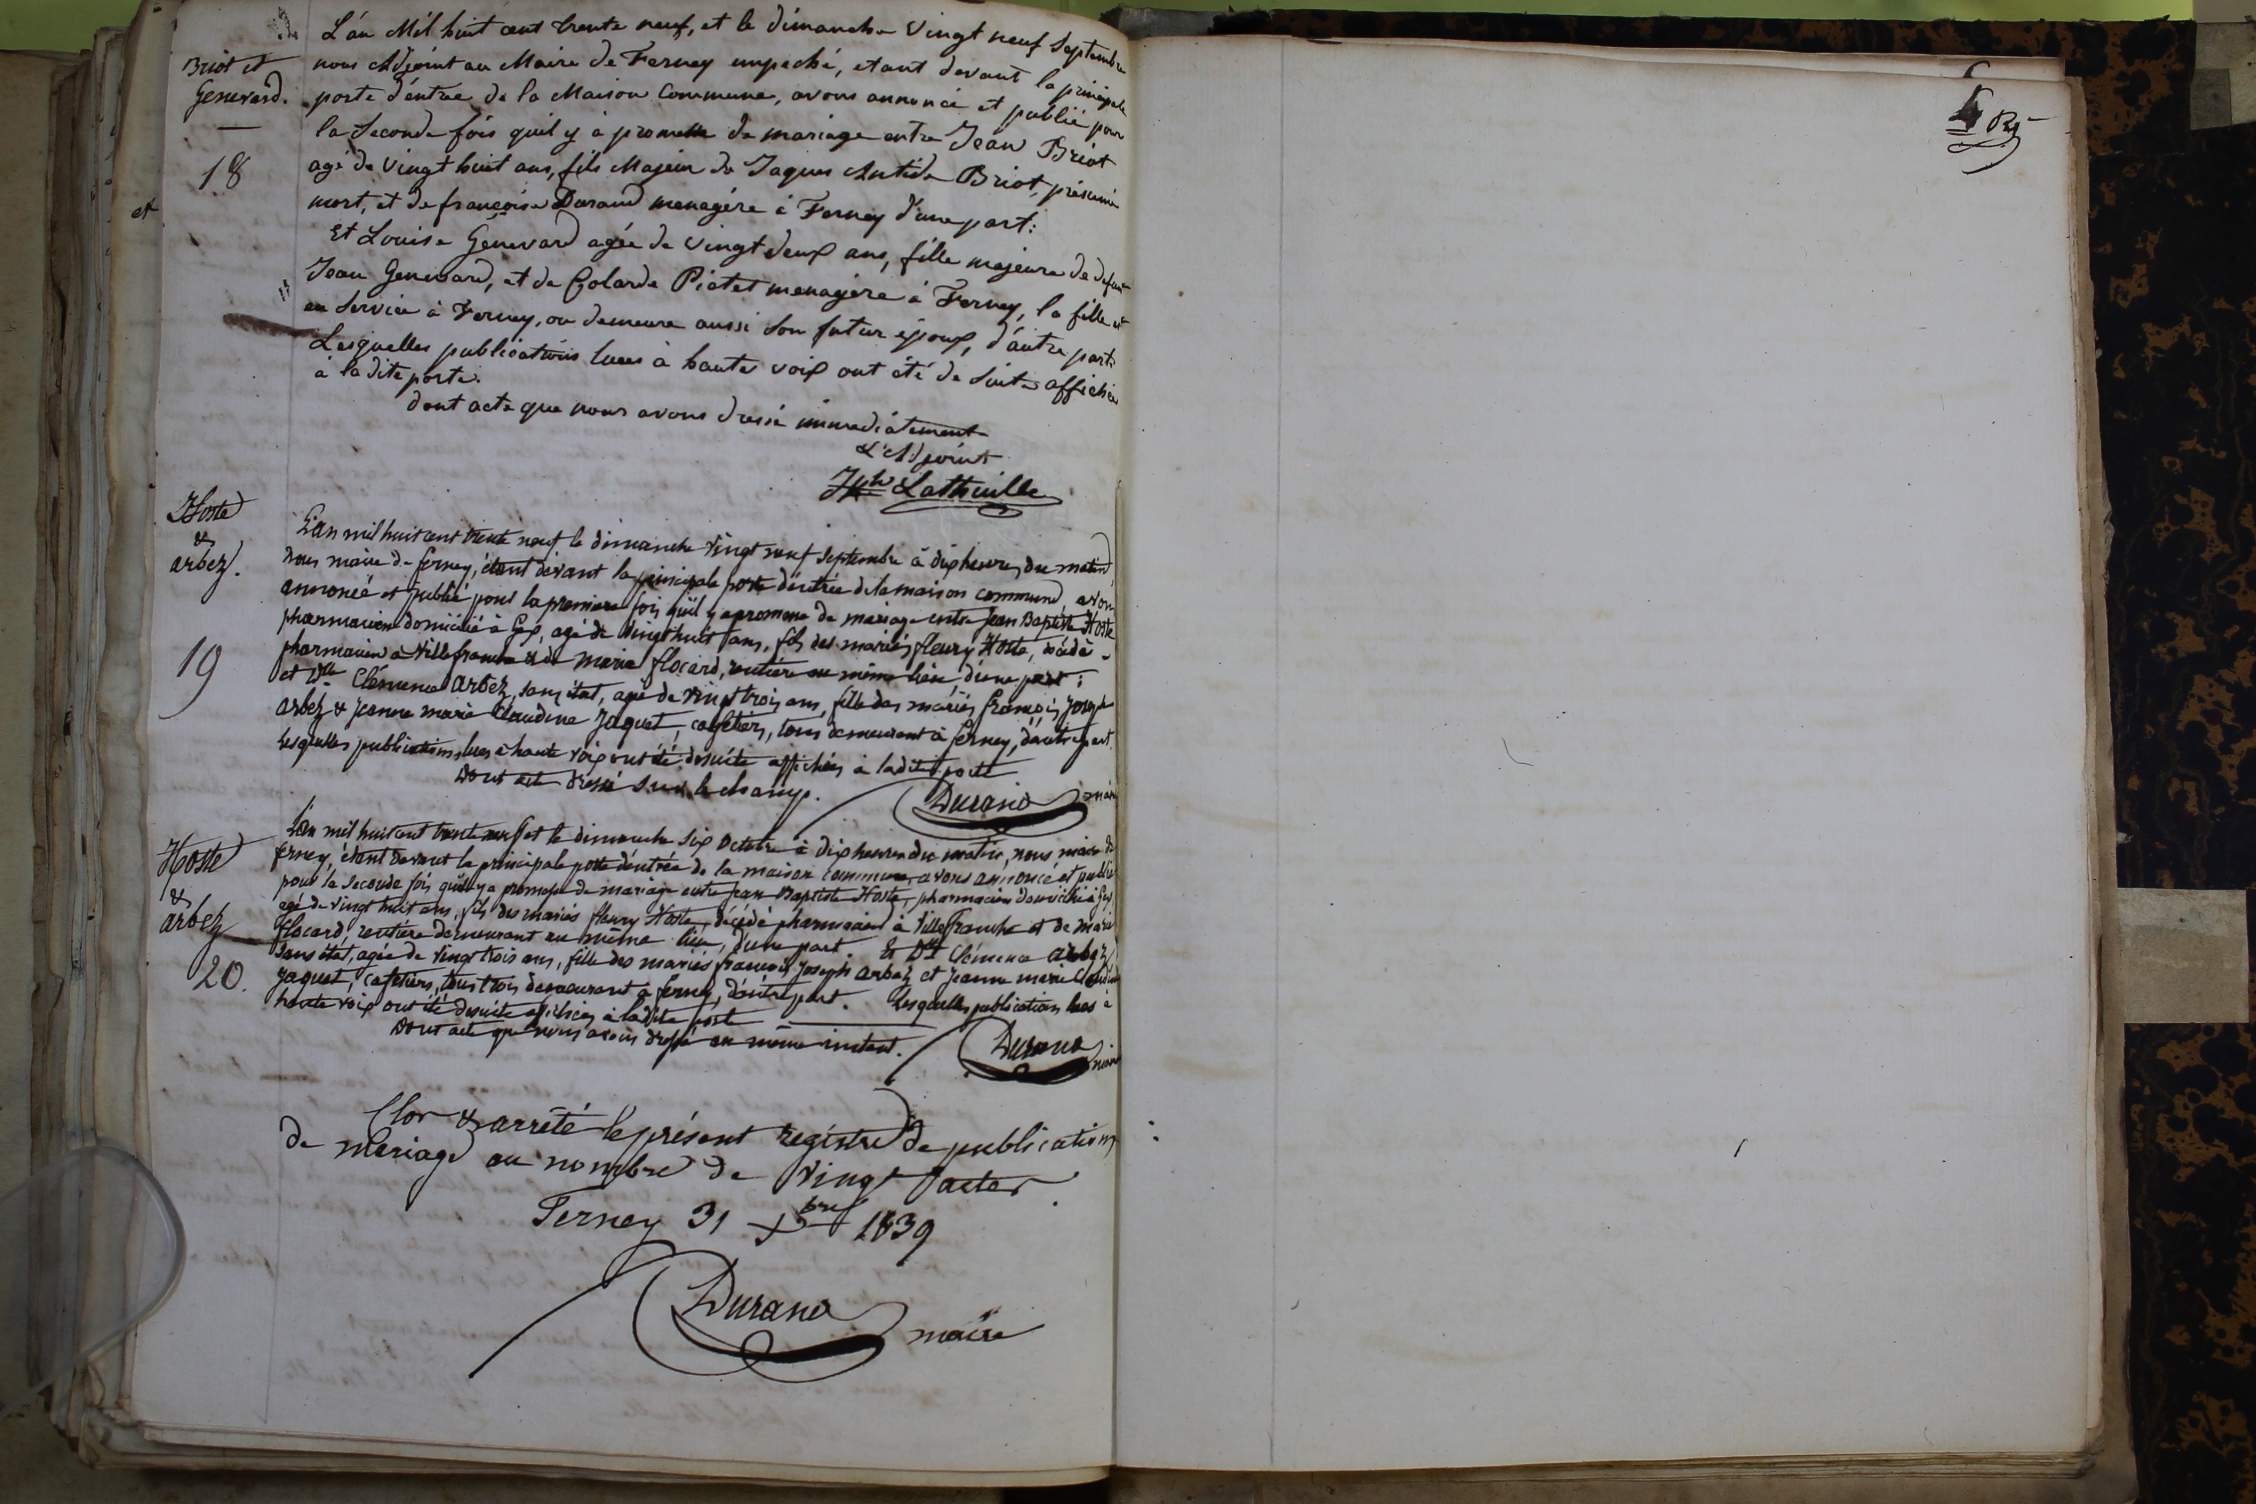 L'an Mil huit cent trente neuf, et le dimanche vingt neuf Septembre
Briot et
nous Adjoint au Maire de Ferney empeché, etant devant la principale
Genevard.
porte d'éntrée de la Maison Commune, avons annoncé et publié pour
la Seconde fois quil y à promesse de mariage entre Jean Briot
18
agé de vingt huit ans, fils Majeur de Jaques Antide Briot, présumé
et
mort, et de françoise Durand menagére à Ferney d'une part:
Et Louise Genevard agée de vingt deux ans, fille majeure de defunt
Jean Genevard, et de Colarde Piotet menagère à Ferney, la fille est
en Service à Ferney, ou demeure aussi Son futur époux, d'autre part:
Lesquelles publications lues à haute voix ont été de Suite affichées
à la dite porte.
dont acte que nous avons dressé immediatement
L'Adjoint
Jph Lathuille
Hoste
&
arbez.
L'an mil huit cent trente neuf le dimanche vingt neuf septembre à dix heures du matin,
nous maire de ferney, étant devant la principale porte d'entrée de la maison commune, avons
annoncé et publié pour la premiere fois qu'il y a promesse de mariage entre Jean Baptiste Hoste
pharmacien domicilié à Gex, agé de vingt huit ans, fils des mariés fleury Hoste, décédé
19
pharmacien à villefranche & de marie flocard, rentière au même lieu, d'une part;
et Dlle Clémence arbez, sans état, agée de vingt trois ans, fille des mariés françois Joseph
arbez & Jeanne marie Claudine Jaquet, cafetiers, tous demeurant à ferney, d'autre part.
Lesquelles publications lues à haute voix ont été desuite affichées à la dite porte
Dont acte dressé sur le champ.
Durand maire
L'an mil huit cent trente neuf et le dimanche six octobre à dix heures du matin, nous maire de
Hoste
ferney, étant devant la principale porte d'entrée de la maison commune, avons annoncé et publié
&
pour la seconde fois qu'il y a promesse de mariage entre Jean Baptiste Hoste, pharmacien domicilié à Gex
agé de vingt huit ans, fils des mariés fleury Hoste, décédé pharmacien à villefranche et de marie
arbez
flocard, rentière demeurant au même lieu, d'une part Et Dlle Clémence arbez
sans état, agée de vingt trois ans, fille des mariés françois Joseph arbez et Jeanne marie Claudine
20.
Jaquet, cafetiers, tous trois demeurant à ferney, d'autre part. Lesquelles publications lues à
haute voix ont été desuite affichées à la dite porte
Dont acte que nous avons dressé au même instant.
Durand maire
Clos & arrêté le présent registre de publications
de mariage au nombre de vingt actes
Ferney 31 Xbre 1839
Durand maire